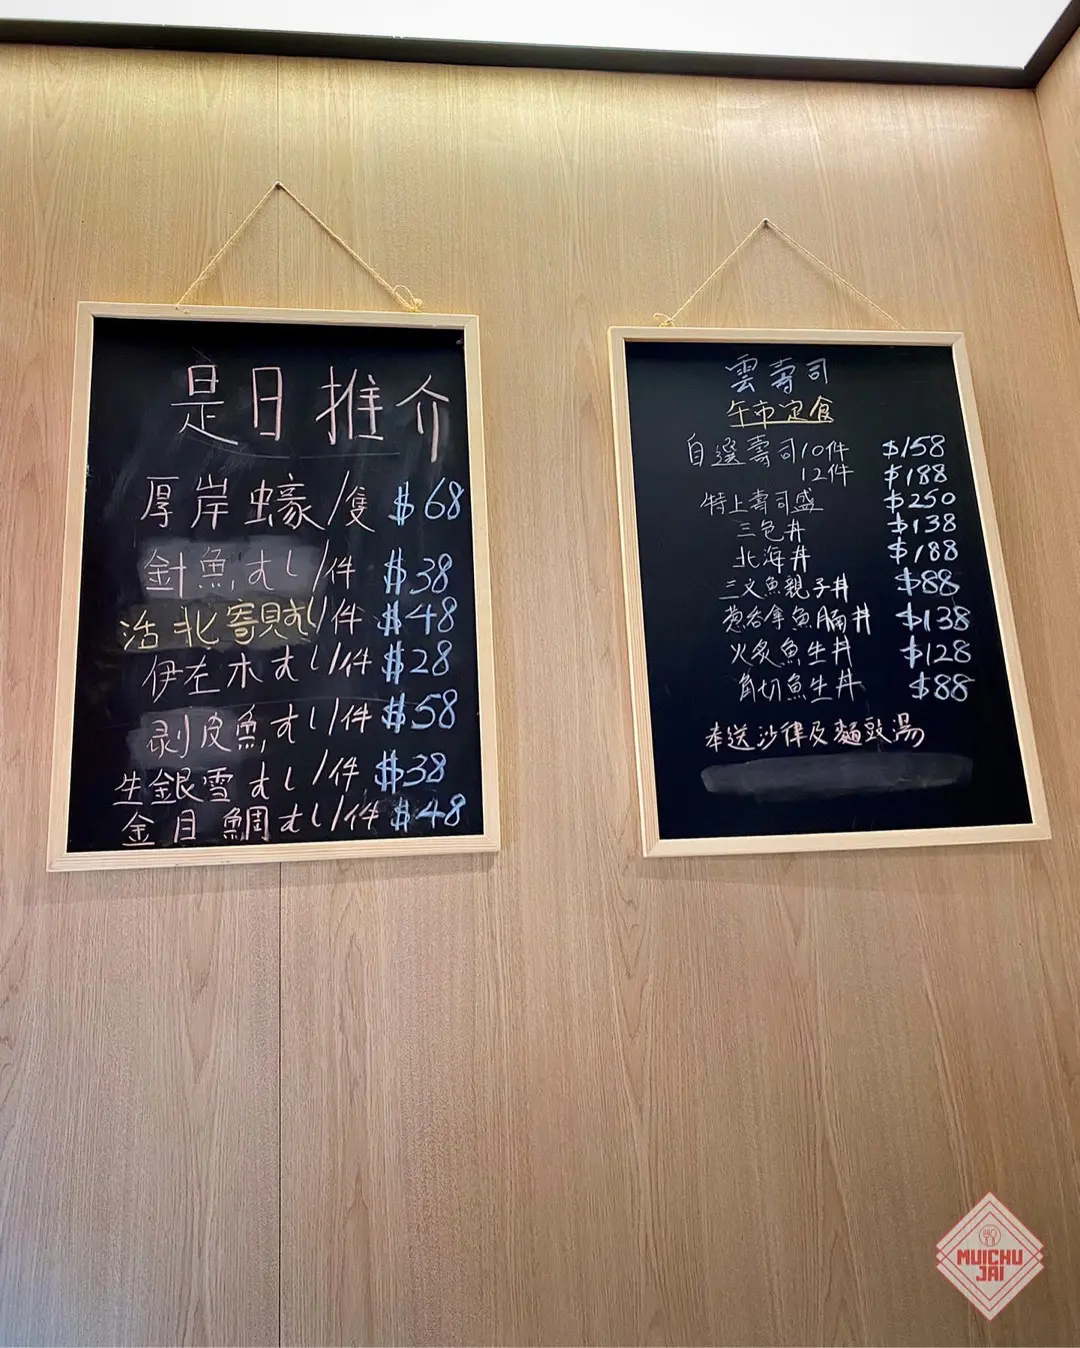 是日推介
厚岸蠔/隻 $68
針魚すし/件 $38
活北寄貝すし/件 $48
伊左木すし/件 $28
剥皮魚すし/件 $58
生銀雪すし/件 $38
金目鯛すし/件 $48
雲壽司
午市定食
自選壽司10件 $158
12件 $188
特上壽司盛 $250
三色丼 $138
北海丼 $188
三文魚親子丼 $88
葱吞拿魚腩丼 $138
火炙魚生丼 $128
角切魚生丼 $88
奉送沙律及麵豉湯
MUICHU
JAI